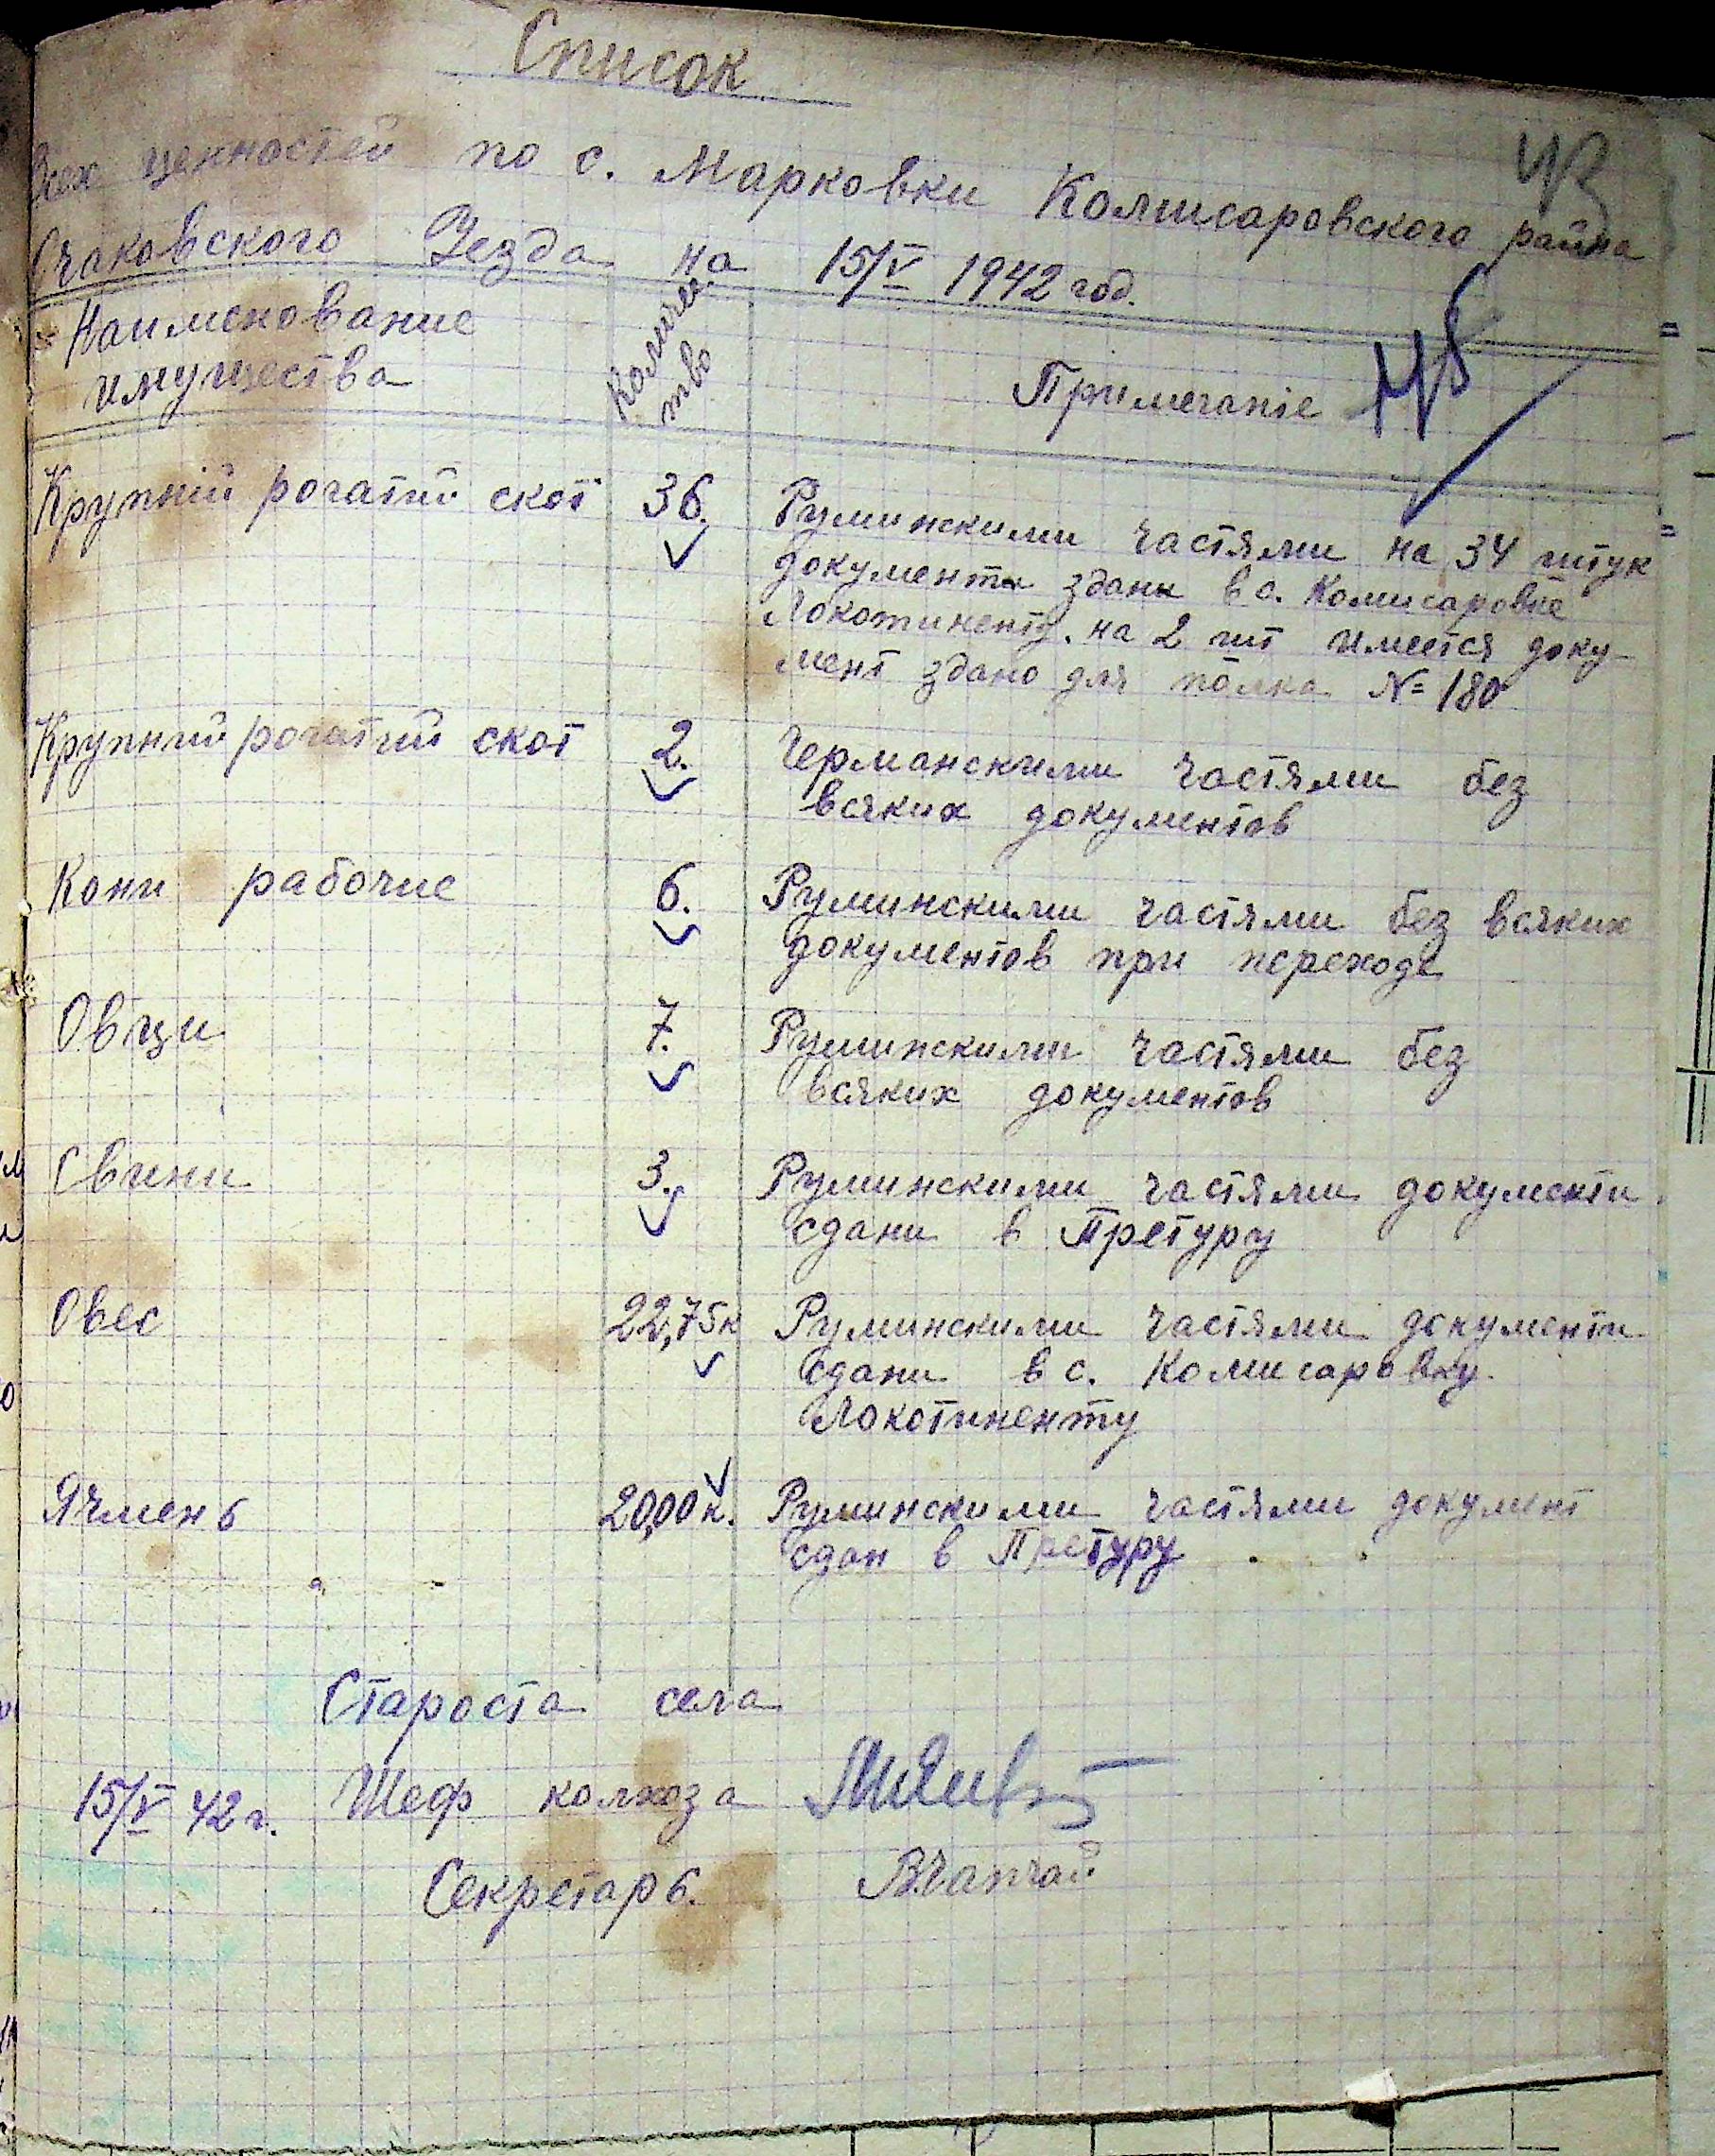 Список
Всех ценностей по с. Марковки Комисаровского района
Очаковского Уезда на 15/V 1942 год.
Наименование имущества
Количество
Примечаніе
Крупній рогатий скот 36. Руминскими частями на 34 штук
документи здани в с. Комисаровке
Локотиненту. на 2 шт имеется доку-
мент здано для полка №180
Крупний рогатий скот 2. Германскими частями без
всяких документов
Кони рабочие 6. Руминскими частями без всяких
документов при переходе
Овци 7. Руминскими частями без
всяких документов
Свини 3. Руминскими частями документи
сдани в Претуру
Овес 22,75к Руминскими частями документи
сдани в с. Комисаровку
Локотиненту
Ячмень 20,00к. Руминскими частями документ
сдан в Претуру
Староста села
15/V 42 г. Шеф колхоза
Секретарь.